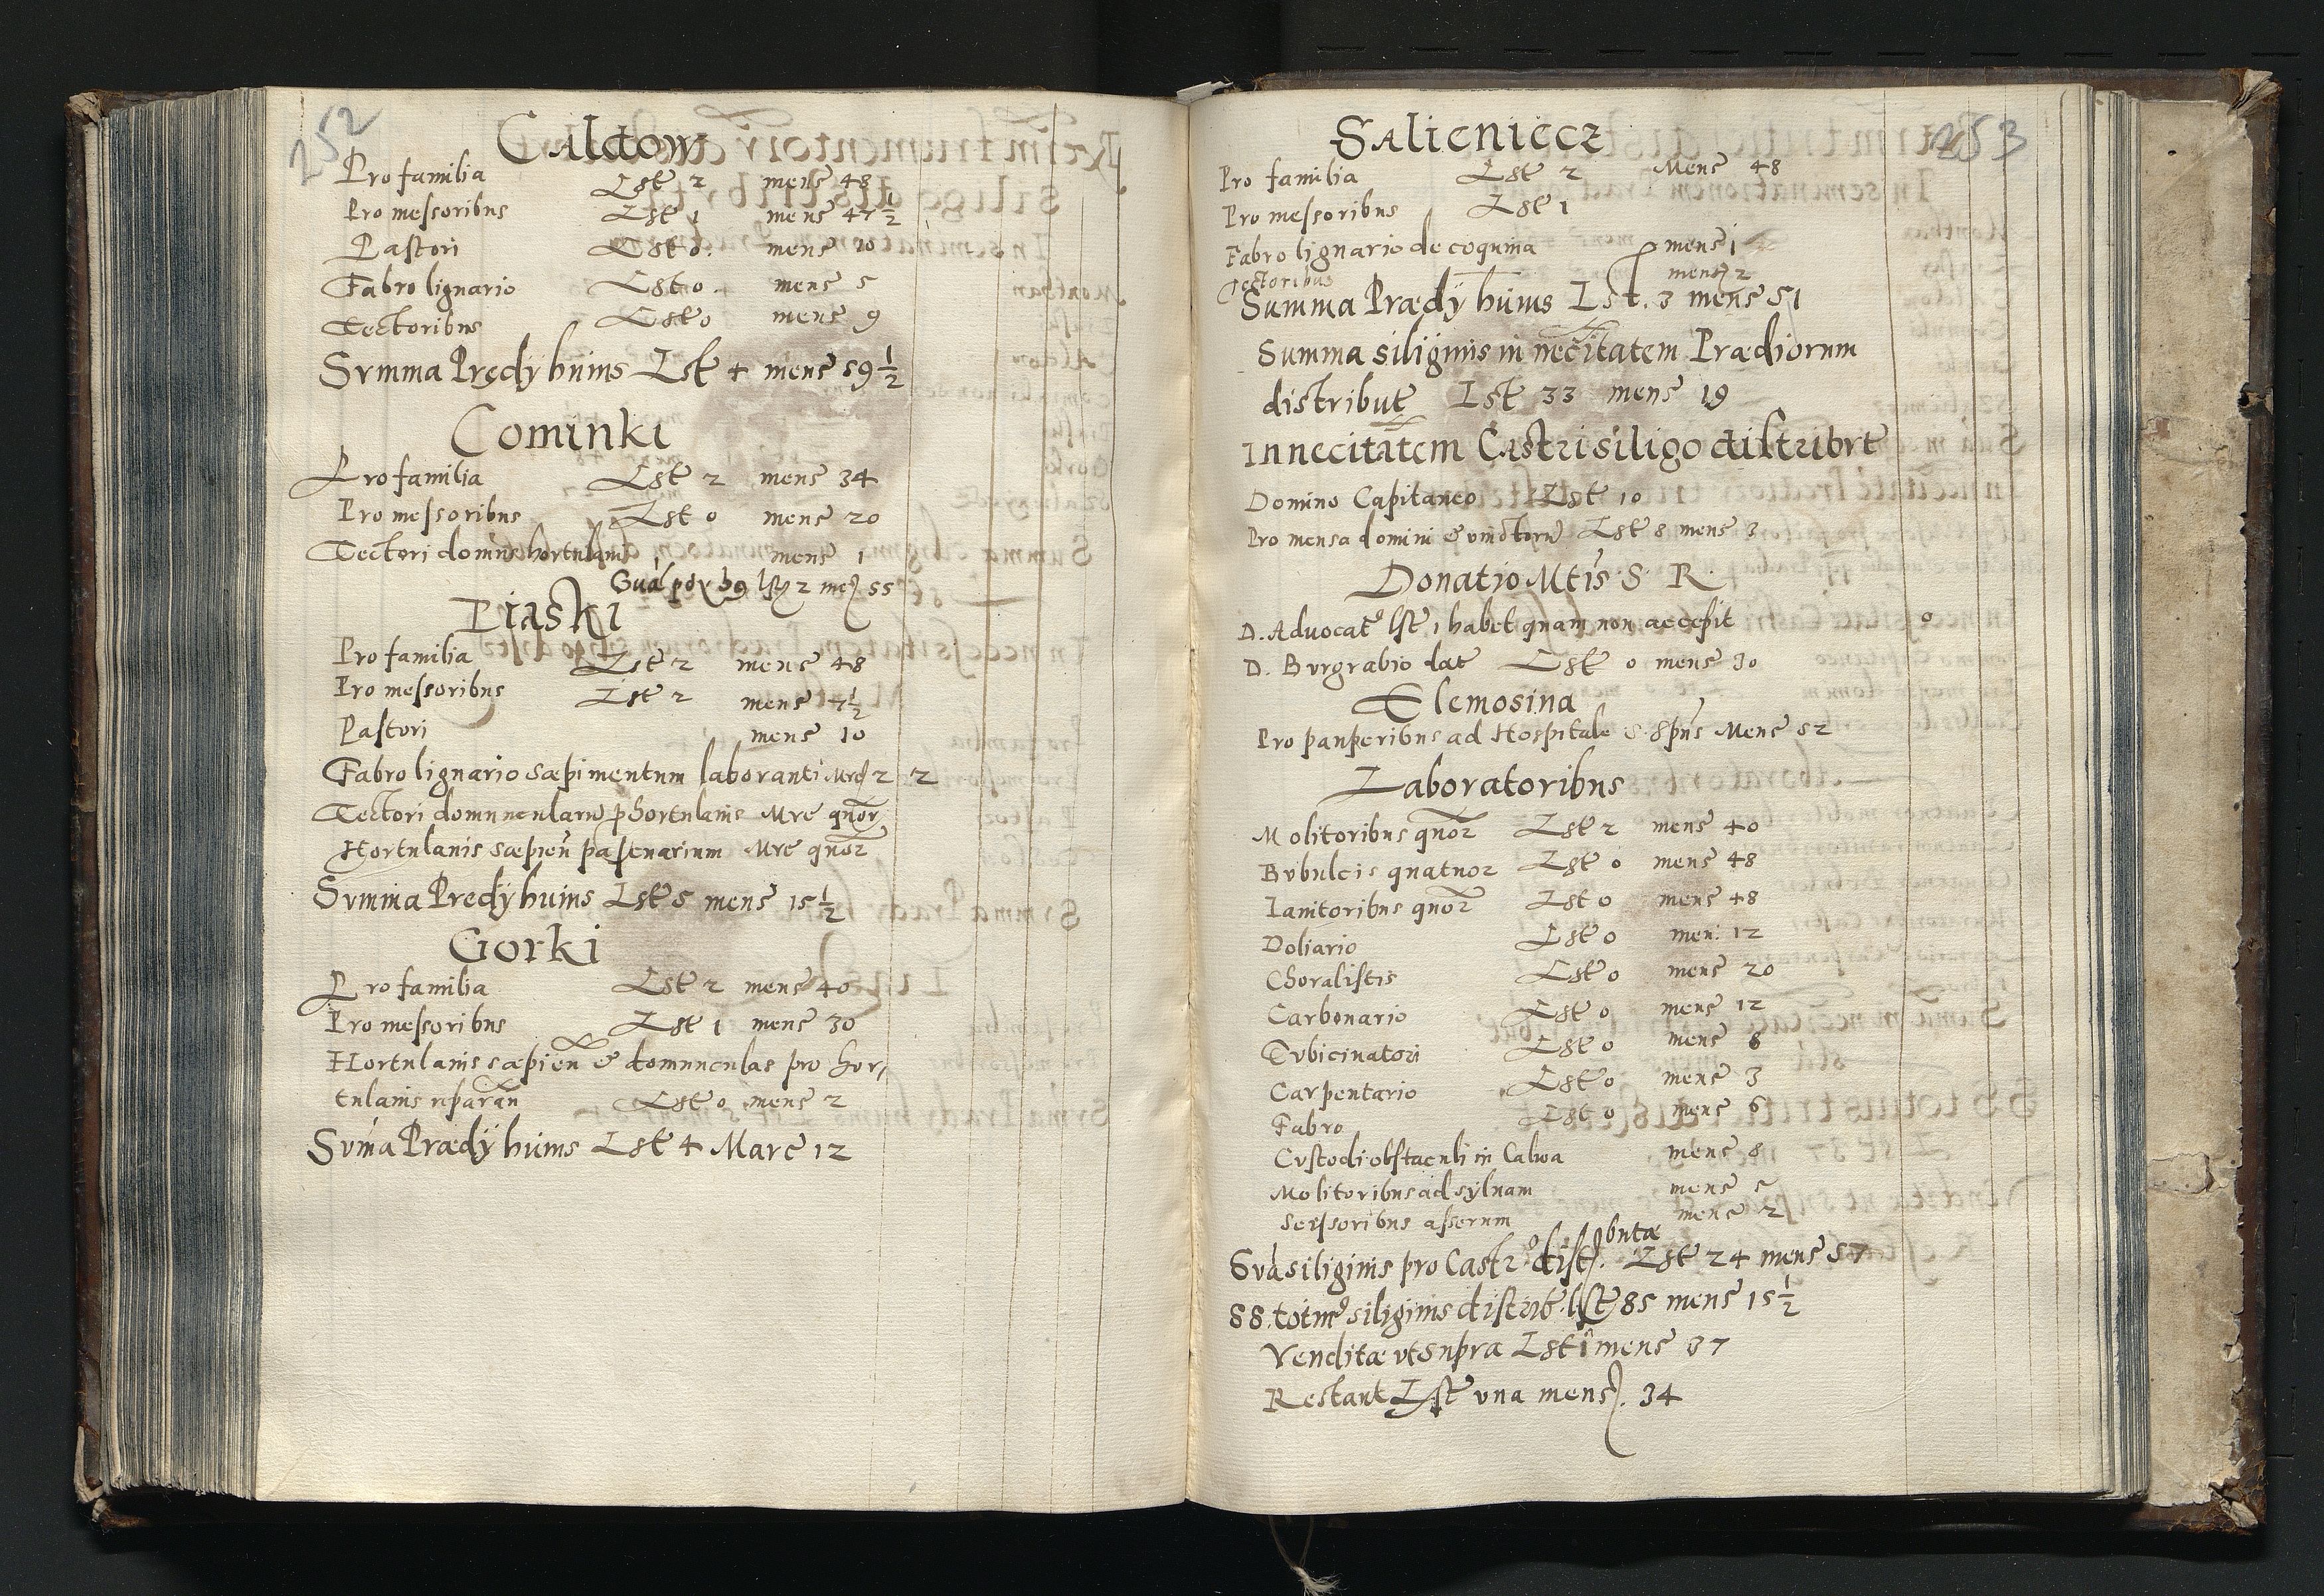 252
Caldow
Pro familia Lst 2 mens 48
Pro messoribus Lst 1 mens 47 1/2
Pastori Lst 0. mens 10
Fabro lignario Lst 0. mens 5
Tectoribus Lst 0 mens 9
Svmma Prędy huius Lst 4 mens 59 1/2
Cominki
Pro familia Lst 2 mens 34
Pro messoribus Lst 0 mens 20
Tectori domus hortulani mens 1
lst 2 mens 55
Piaski
Pro familia Lst 2 mens 48
Pro messoribus Lst 2 mens 7 1/2
Pastori mens 10
Fabro lignario sæpimentum laboranti Mre 2 2
Tectori domuncularu p hortulanis Mre quor
Hortulanis sæpien pasenarium Mre quor
Svmma Predy huius Lst 5 mens 15 1/2
Gorki
Pro familia Lst 2 mens 40
Pro messoribus Lst 1 mens 30
Hortulanis sæpien & domunculas pro hor
tulanis reparan Lst 0 mens 2
Svma Prædy huius Lst 4 Mare 12
253
Salieniecz
Pro familia Lst 2 Mens 48
Pro messoribus Lst 1
Fabro lignario de coquina mens 1
Tectoribus mens 2
Summa Prædy huius Lst. 3 mens 51
Summa siliginis in necitatem Prædiorum
distribut Lst 33 mens 19
In necitatem Castri siligo distribvt
Domino Capitaneo Lst 10
Pro mensa domini & vinctoru Lst 8 mens 3
Donatio Mtis S. R.
D. Advocat lst 1 habet quam non accepit 0
D. Bvrgrabio dat Lst 0 mens 30
Elemosina
Pro pauperibus ad Hospitale S. Spus Mens 52
Laboratoribus
Molitoribus quor Lst 2 mens 40
Bvbulcis quatuor Lst 0 mens 48
Ianitoribus quor Lst 0 mens 48
Doliario Lst 0 men: 12
Choralistis Lst 0 mens 20
Carbonario Lst 0 mens 12
Tvbicinatori Lst 0 mens 6
Carpentario Lst 0 mens 3
Fabro Lst 0 mens 6
Cvstodi obstaculi in Calwa mens 8
Molitoribus ad sylnam mens 5
Scissoribus asserum mens 2
Sva siliginis pro Castro distributæ Lst 24 mens 57
SS. totius siliginis distrib. lst 85 mens 15 1/2
Venditæ vt supra Lst 1 mens 37
Restant Lst vna mens. 34